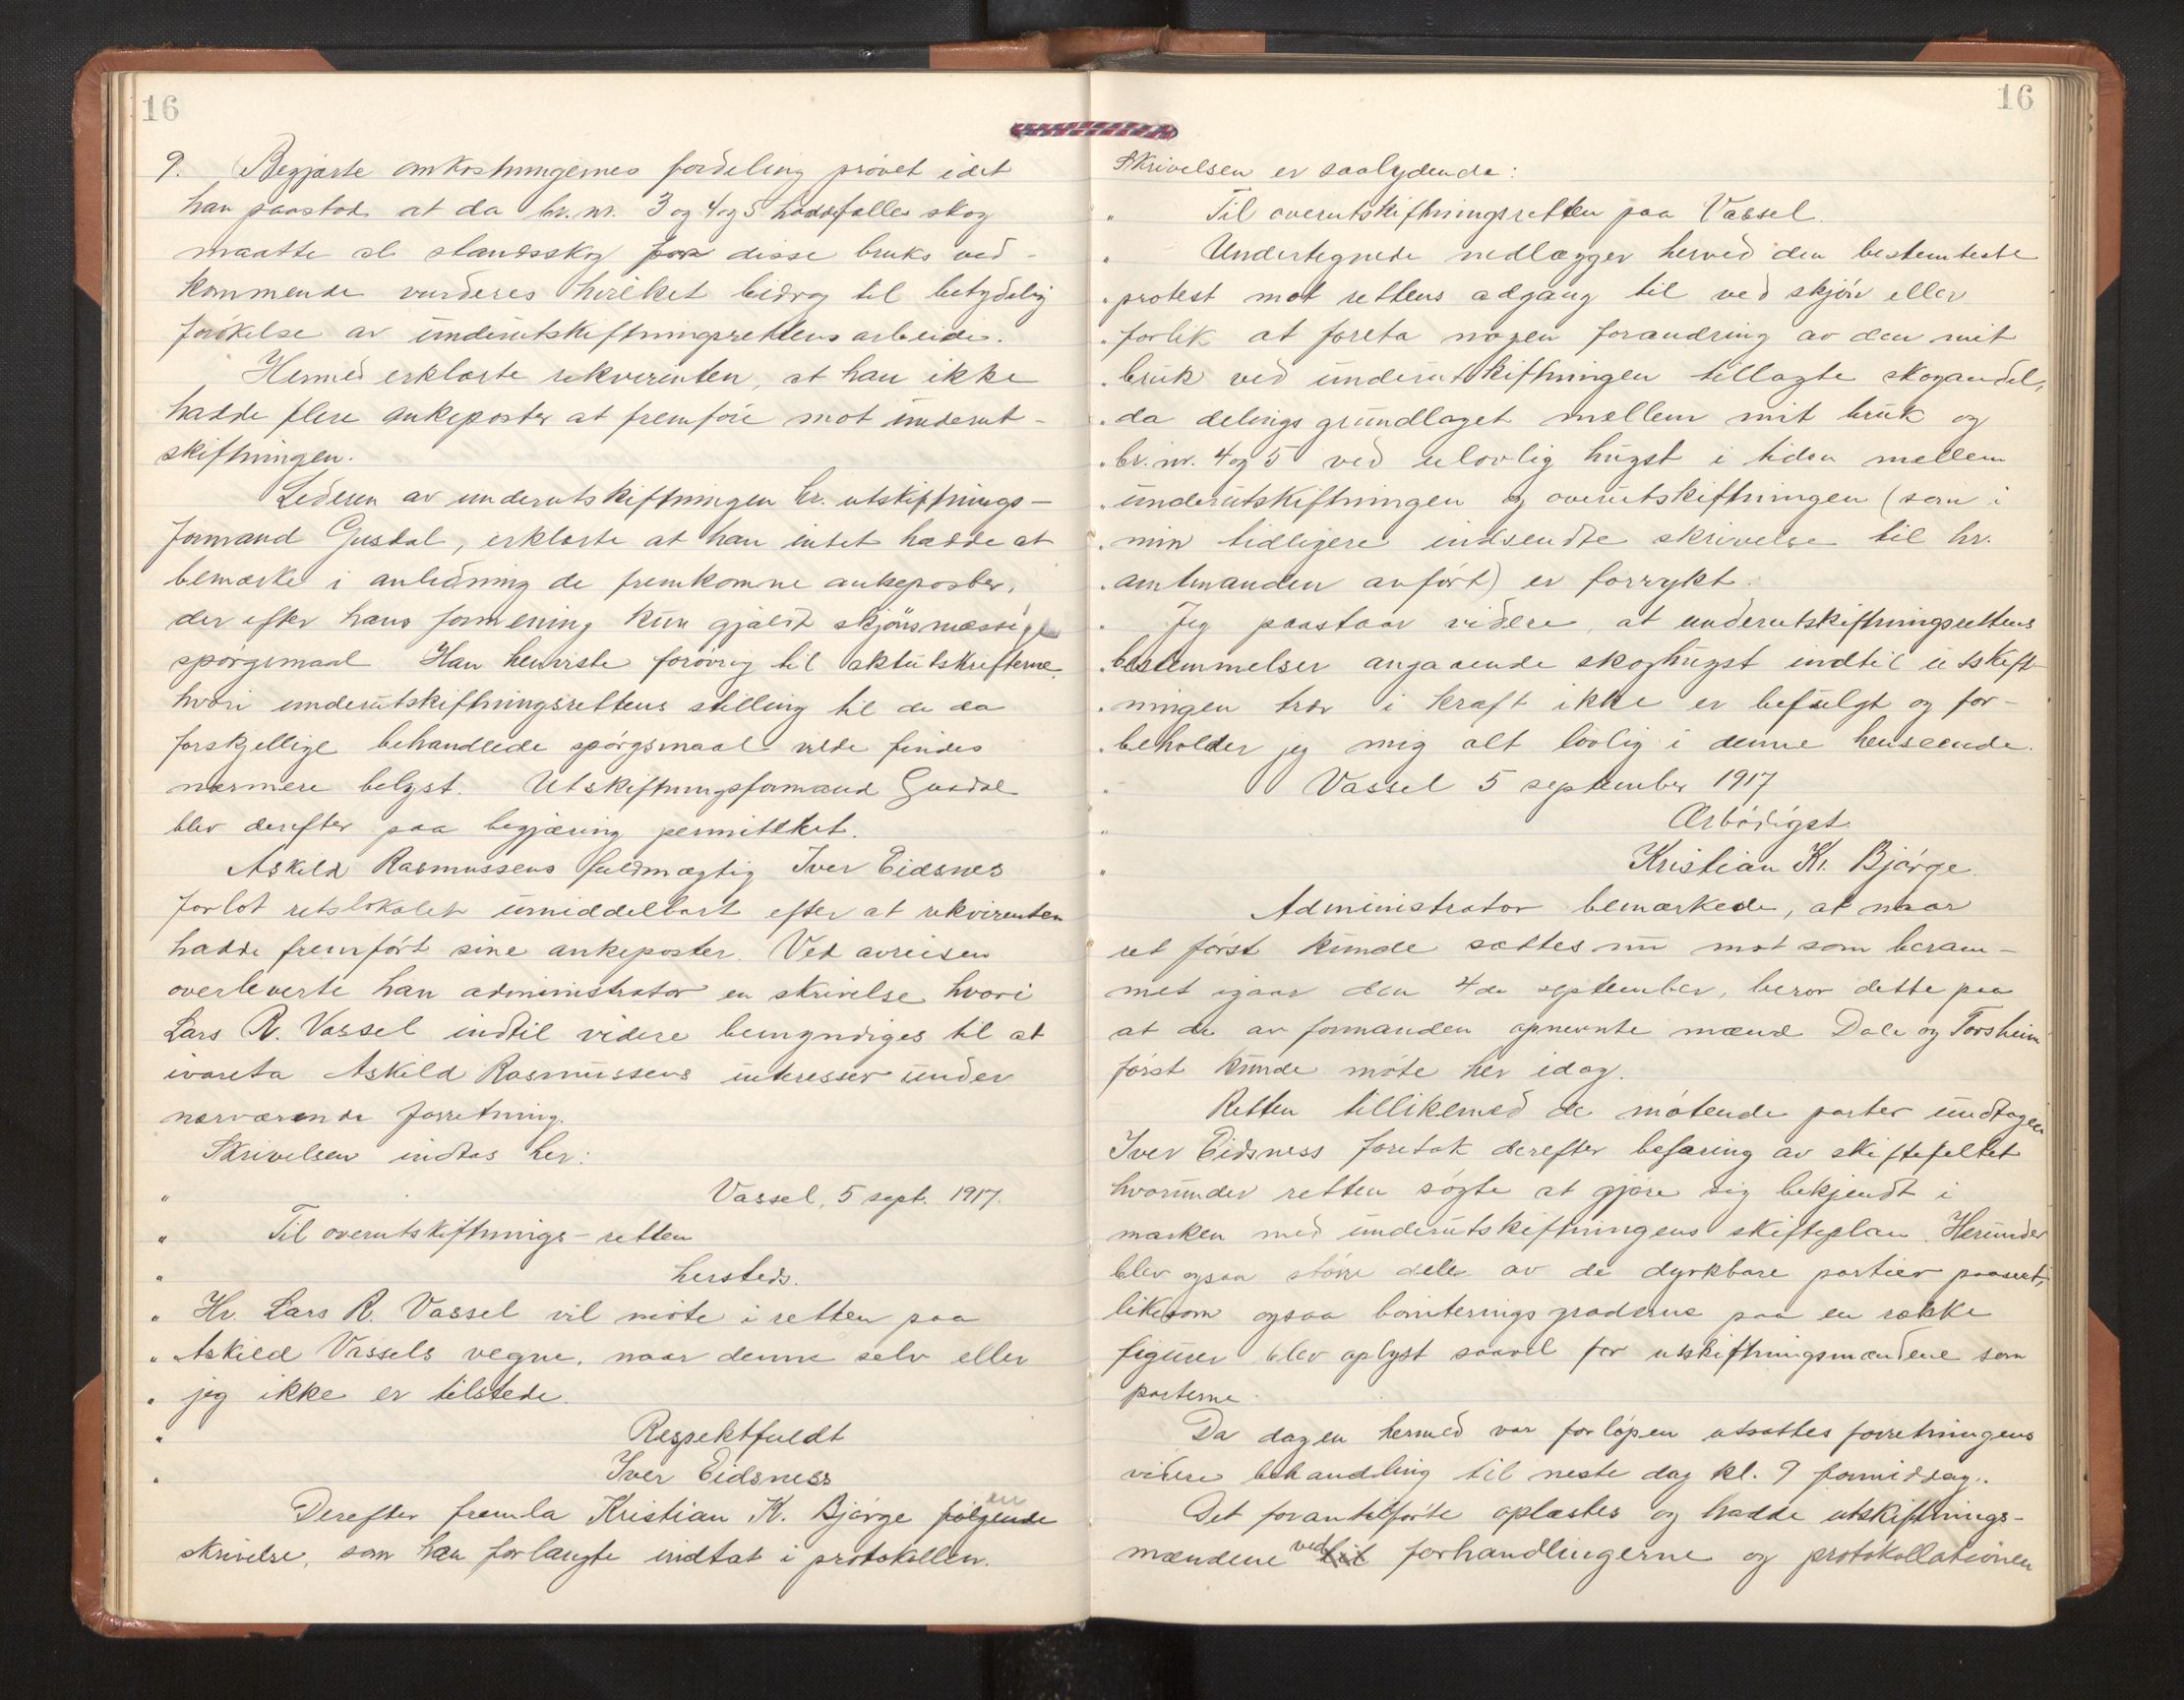 16
9. Begjærte omkostningernes fordeling prøvet idet
han paastod at da br. nr. 3 og 4 og 5 hadde fælles skog
maatte al standsskog for disse bruks ved-
kommende vurderes hvilket bidrog til betydelig
forøkelse av underutskiftningsrettens arbeide.
Hermed erklærte rekvirenten, at han ikke
hadde flere ankeposter at fremføre mot underut-
skiftningen.
Lederen av underutskiftningen hr. utskiftnings-
formand Gusdal, erklærte at han intet hadde at
bemærke i anledning de fremkomne ankeposter,
der efter hans formening kun gjaldt skjønsmæssige
spørgsmaal. Han henviste forøvrig til aktutskrifterne,
hvori underutskiftningsrettens stilling til de da
forskjellige behandlede spørgsmaal vilde findes
nærmere belyst. Utskiftningsformand Gusdal
blev derefter paa begjæring permittert.
Askild Rasmussens fuldmægtig Iver Eidsnes
forlot retslokalet umiddelbart efter at rekvirenten
hadde fremført sine ankeposter. Ved avreisen
overleverte han administrator en skrivelse hvori
Lars R. Vassel indtil videre bemyndiges til at
ivareta Askild Rasmussens interesser under
nærværende forretning.
Skrivelsen indtas her:
" Vassel, 5 sept. 1917.
" Til overutskiftnings-retten
" hersteds.
" Hr. Lars R. Vassel vil møte i retten paa
" Askild Vassels vegne, naar denne selv eller
" jeg ikke er tilstede.
" Respektfuldt
" Iver Eidsness
Derefter fremla Kristian K. Bjørge følgende en
skrivelse, som han forlangte indtat i protokollen.
16
Skrivelsen er saalydende:
" Til overutskiftningsretten paa Vassel.
" Undertegnede nedlægger herved den bestemteste
" protest mot rettens adgang til ved skjøn eller
" forlik at foreta nogen forandring av den mit
" bruk ved underutskiftningen tillagte skogandel,
" da delingsgrundlaget mellem mit bruk og
" br. nr. 4 og 5 ved ulovlig hugst i tiden mellem
" underutskiftningen og overutskiftningen (som i
" min tidligere indsendte skrivelse til hr.
" amtmanden anført) er forrykt.
" Jeg paastaar videre, at underutskiftningsrettens
" bestemmelser angaaende skoghugst indtil utskift-
" ningen trær i kraft ikke er befulgt og for-
" beholder jeg mig alt lovlig i denne henseende.
" Vassel 5 september 1917
" Ærbødigst
" Kristian Kr. Bjørge.
Administrator bemærkede, at naar
ret først kunde sættes nu mot som beram-
met igaar den 4de september, beror dette paa
at de av formanden opnevnte mænd Dale og Torsheim
først kunde møte her idag.
Retten tillikemed de møtende parter undtagen
Iver Eidsness foretok derefter befaring av skiftefeltet
hvorunder retten søgte at gjøre sig bekjendt i
marken med underutskiftningens skifteplan. Herunder
blev ogsaa større dele av de dyrkbare partier paaseet,
likesom ogsaa boniteringsgraderne paa en række
figurer blev oplyst saavel for utskiftningsmændene som
parterne.
Da dagen hermed var forløpen utsattes forretningens
videre behandling til neste dag kl. 9 formiddag.
Det foranstaaende oplæstes og hadde utskiftnings-
mændene ved til forhandlingerne og protokollationen